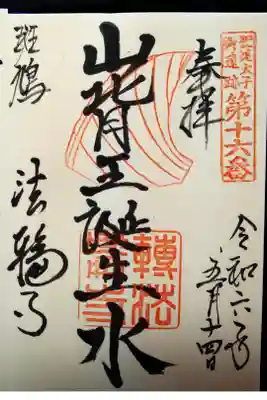 聖徳太子
御遺跡
第十六番
奉拝
令和六年
五月十四日
山背王誕生水
轉法
斑鳩
法輪寺